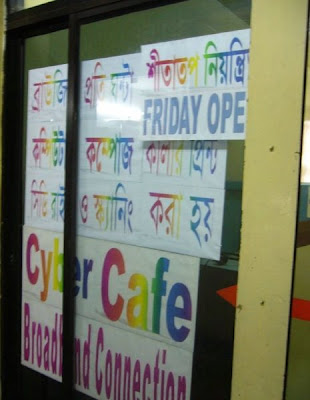 ব্রাউজি প্রতি ঘন্টা শীতাতপ নিয়ন্ত্রি
FRIDAY OPE
কম্পিউট কম্পোজ কালার প্রিন্ট
সিডি রাই ও স্ক্যানিং করা হয়
Cyber Cafe
Broadband Connection